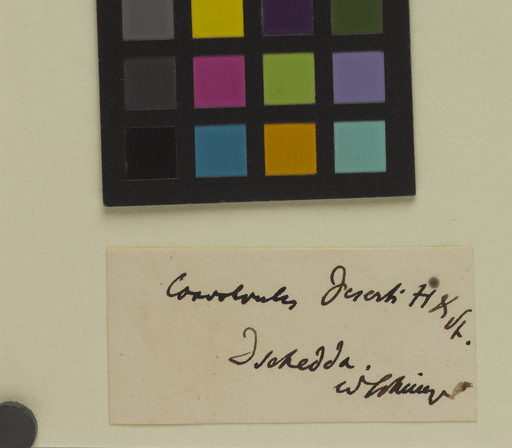 Convolvulus Deserti H & St.
Dschedda.
W Schimper